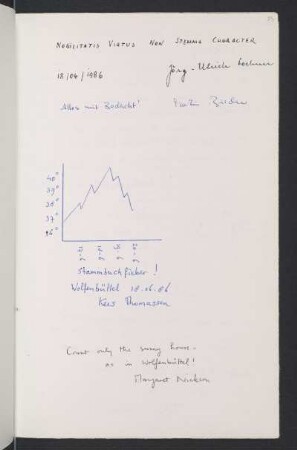 NOBILITATIS VIRTUS NON STEMMA CHARACTER
18/04/1986 Jörg-Ulrich
Alles mit Bedacht!
40°
39°
38°
37°
36°
Stammbuchfieber!
Wolfenbüttel 18.06.86
Kees Thomassen
Count only the sunny hours –
as in Wolfenbüttel!
Margaret